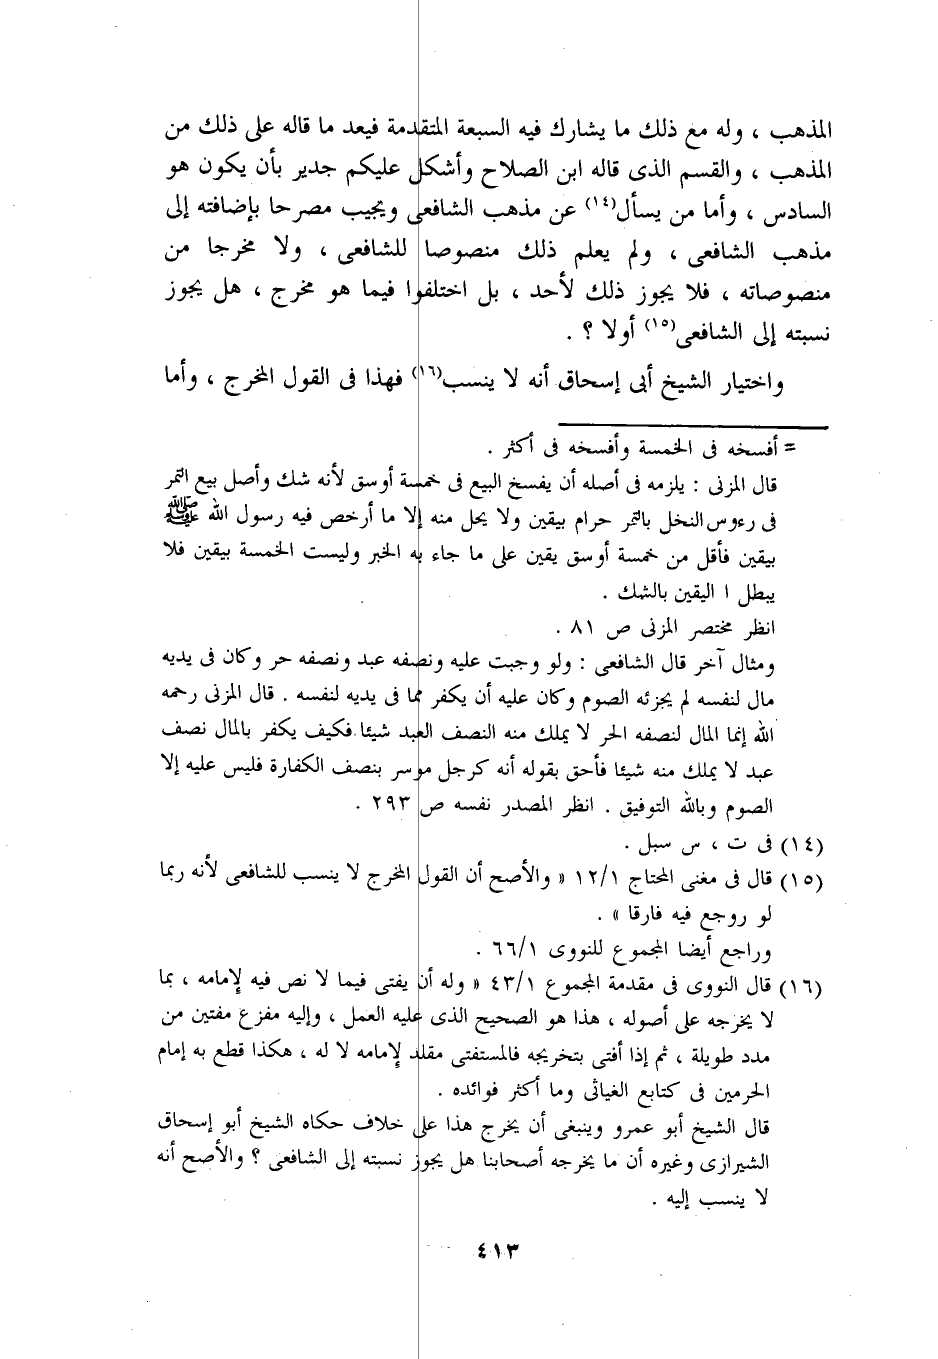 المذهب ، وله مع ذلك ما يشارك فيه السبعة المتقدمة فيعد ما قاله على ذلك من
المذهب ، والقسم الذى قاله ابن الصلاح وأشكل عليكم جدير بأن يكون هو
السادس ، وأما من يسأل(١٤) عن مذهب الشافعى ويجيب مصرحا بإضافته إلى
مذهب الشافعى ، ولم يعلم ذلك منصوصا للشافعى ، ولا مخرجا من
منصوصاته ، فلا يجوز ذلك لأحد ، بل اختلفوا فيما هو مخرج ، هل يجوز
نسبته إلى الشافعى(١٥) أولا ؟ .
واختيار الشيخ أبى إسحاق أنه لا ينسب(١٦) فهذا فى القول المخرج ، وأما
= أفسخه فى الخمسة وأفسخه فى أكثر .
قال المزنى : يلزمه فى أصله أن يفسخ البيع فى خمسة أوسق لأنه شك وأصل بيع التمر
فى رءوس النخل بالتمر حرام بيقين ولا يحل منه إلا ما أرخص فيه رسول الله ﷺ
بيقين فأقل من خمسة أوسق يقين على ما جاء به الخبر وليست الخمسة بيقين فلا
يبطل ا اليقين بالشك .
انظر مختصر المزنى ص ٨١ .
ومثال آخر قال الشافعى : ولو وجبت عليه ونصفه عبد ونصفه حر وكان فى يديه
مال لنفسه لم يجزئه الصوم وكان عليه أن يكفر مما فى يديه لنفسه . قال المزنى رحمه
الله إنما المال لنصفه الحر لا يملك منه النصف العبد شيئا فكيف يكفر بالمال نصف
عبد لا يملك منه شيئا فأحق بقوله أنه كرجل موسر بنصف الكفارة فليس عليه إلا
الصوم وبالله التوفيق . انظر المصدر نفسه ص ٢٩٣ .
(١٤) فى ت ، س سبل .
(١٥) قال فى مغنى المحتاج ١٢/١ « والأصح أن القول المخرج لا ينسب للشافعى لأنه ربما
لو روجع فيه فارقا » .
وراجع أيضا المجموع للنووى ٦٦/١ .
(١٦) قال النووى فى مقدمة المجموع ٤٣/١ « وله أن يفتى فيما لا نص فيه لإمامه ، بما
لا يخرجه على أصوله ، هذا هو الصحيح الذى عليه العمل ، وإليه مفزع مفتين من
مدد طويلة ، ثم إذا أفتى بتخريجه فالمستفتى مقلد لإمامه لا له ، هكذا قطع به إمام
الحرمين فى كتابع الغياثى وما أكثر فوائده .
قال الشيخ أبو عمرو وينبغى أن يخرج هذا على خلاف حكاه الشيخ أبو إسحاق
الشيرازى وغيره أن ما يخرجه أصحابنا هل يجوز نسبته إلى الشافعى ؟ والأصح أنه
لا ينسب إليه .
٤١٣